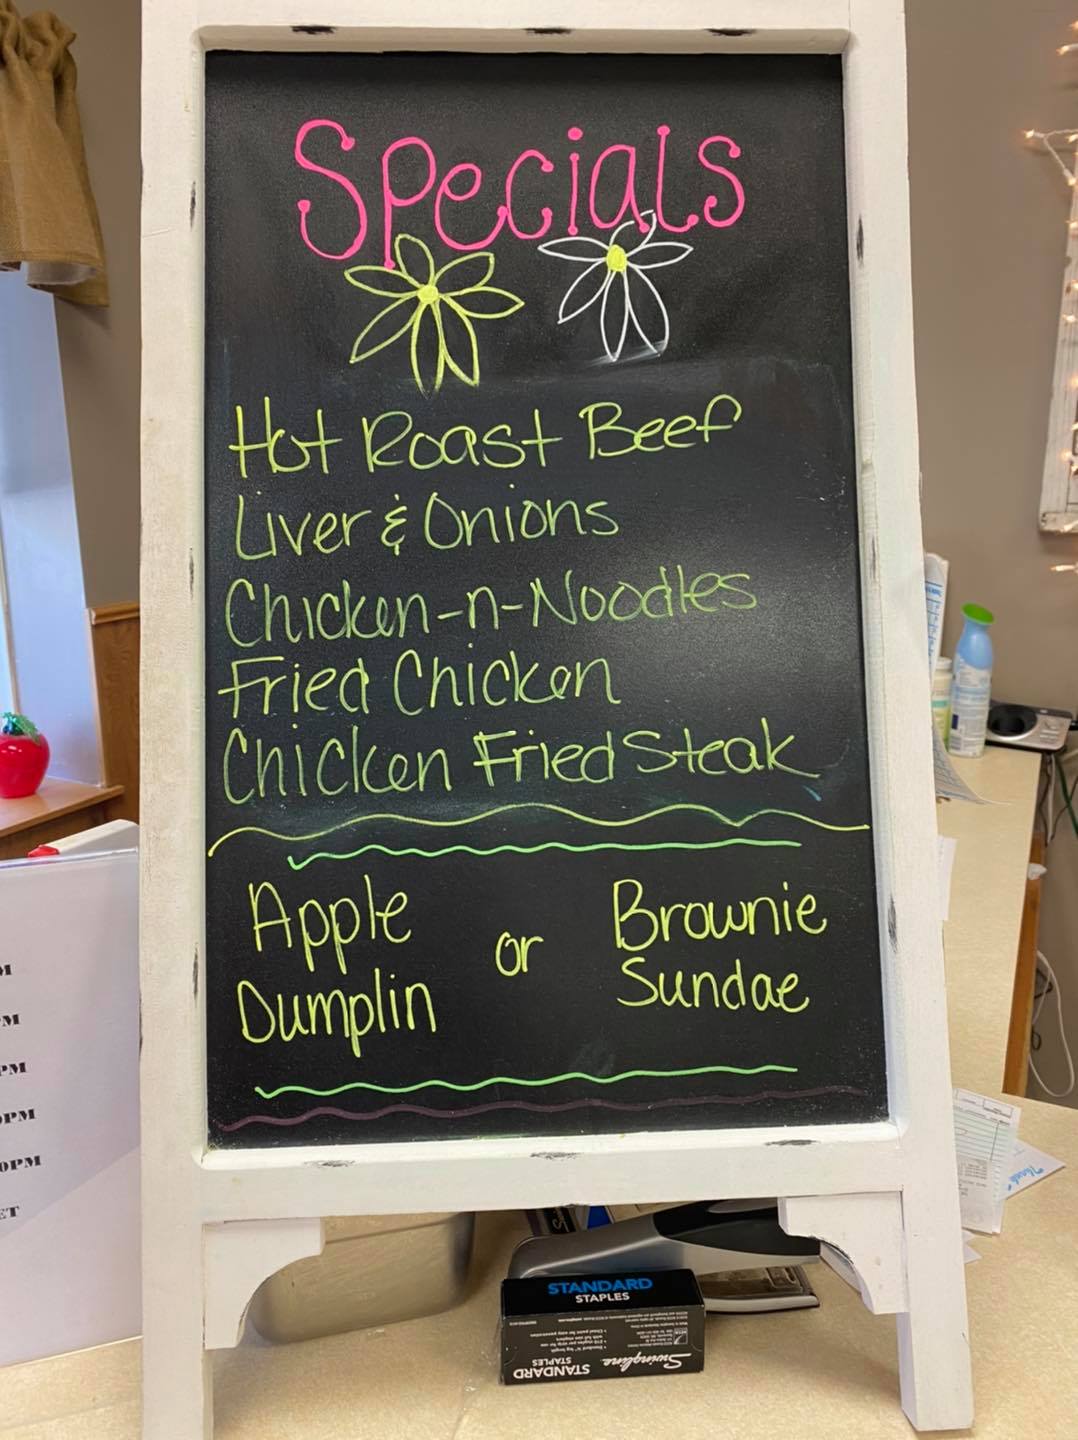 Specials
Hot Roast Beef
Liver & Onions
Chicken-n-Noodles
Fried Chicken
Chicken Fried Steak
Apple
Dumplin
or
Brownie
Sundae
M
PM
PM
0PM
0PM
ET
STANDARD
STAPLES
Swingline
STANDARD
STAPLES